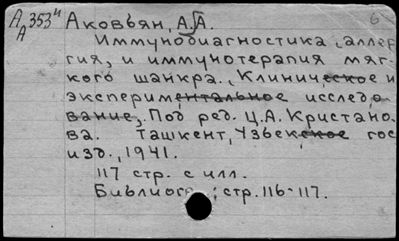 А/А 353ч Аковьян, А.А. 6
Иммунодиагностика, аллер
гия, и иммунотерапия мяг-
кого шанкра. Клиническое и
экспериментальное исследо
вание. Под ред. Ц.А. Кристано-
ва. Ташкент, Узбекское гос
изд., 1941.
117 стр. с илл.
Библиогр.: стр. 116-117.